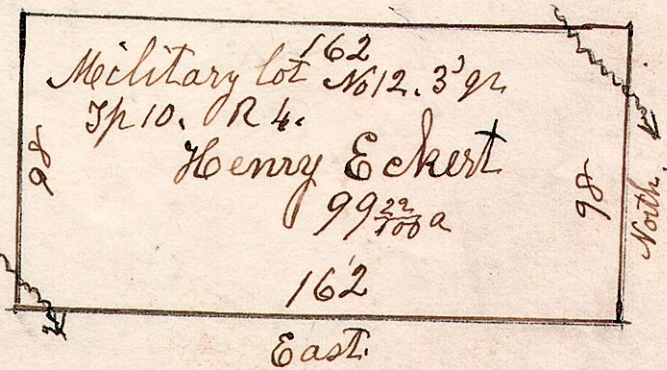 162
Military lot No 12. 3' qr
Tp 10. R 4.
Henry Eckert
99 22/100 a
98
98
North.
162
East.